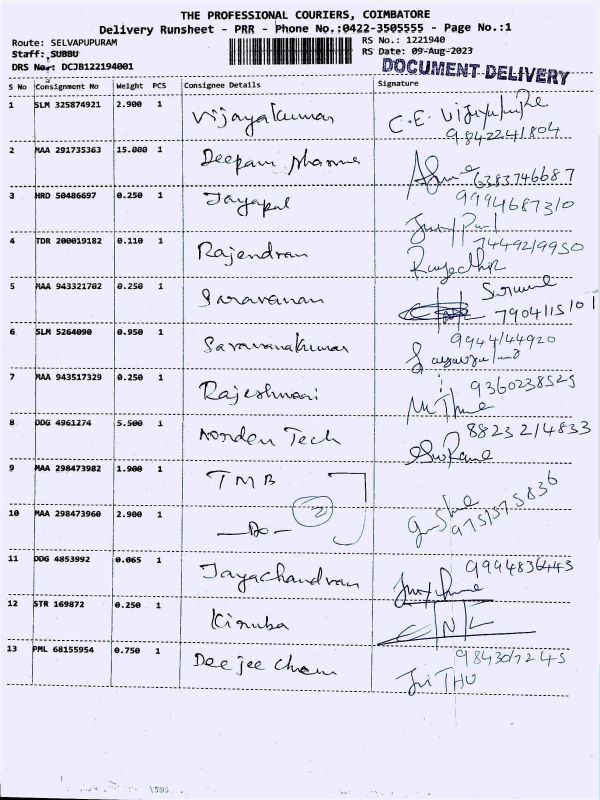 THE PROFESSIONAL COURIERS, COIMBATORE
Delivery Runsheet - PRR - Phone No.:0422-3505555 - Page No.:1
Route: SELVAPUPURAM RS No.: 1221940
Staff: SUBBU RS Date: 09-Aug-2023
DRS No.: DCJB122194001 DOCUMENT DELIVERY
S No Consignment No Weight PCS Consignee Details Signature
1 SLM 325874921 2.900 1 Vijayakumar C.E.
9842241804
2 MAA 291735363 15.000 1 Deepam Sharma
6383746687
3 HRD 50486697 0.250 1 Jayapal 9994687310
4 TDR 200019182 0.110 1 Rajendran 7449219950
5 MAA 943321702 0.250 1 Saravanan
C/NL 7904115101
6 SLM 5264090 0.950 1 Saravanakumar 9944144920
7 MAA 943517329 0.250 1 Rajeshwari 9360238525
8 DDG 4961274 5.500 1 Norden Tech 8823214833
9 MAA 298473982 1.900 1 TMB
10 MAA 298473960 2.900 1 -Do- 2
11 DDG 4853992 0.065 1 Jayachandran 9994836445
12 STR 169872 0.250 1 Kiruba C/NL
13 PML 68155954 0.750 1 Deejee Cham 9843072245